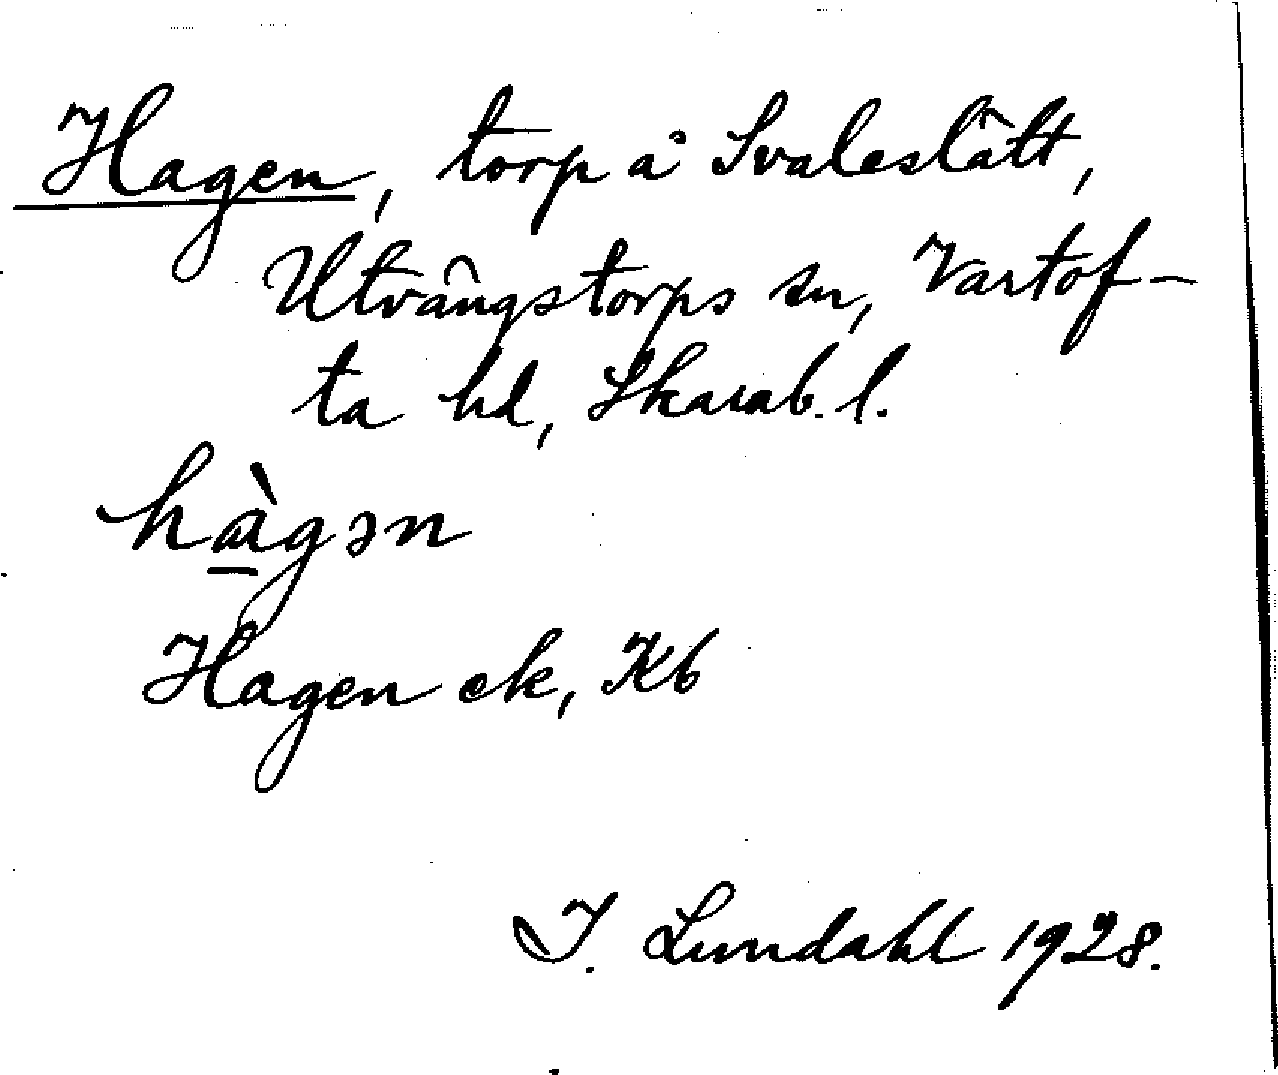 Hagen, torp å Svaleslätt,
Utvängstorps sn, Vartof-
ta hd, Skarab. l.
hàgən
Hagen ek, Kb
I. Lundahl 1928.